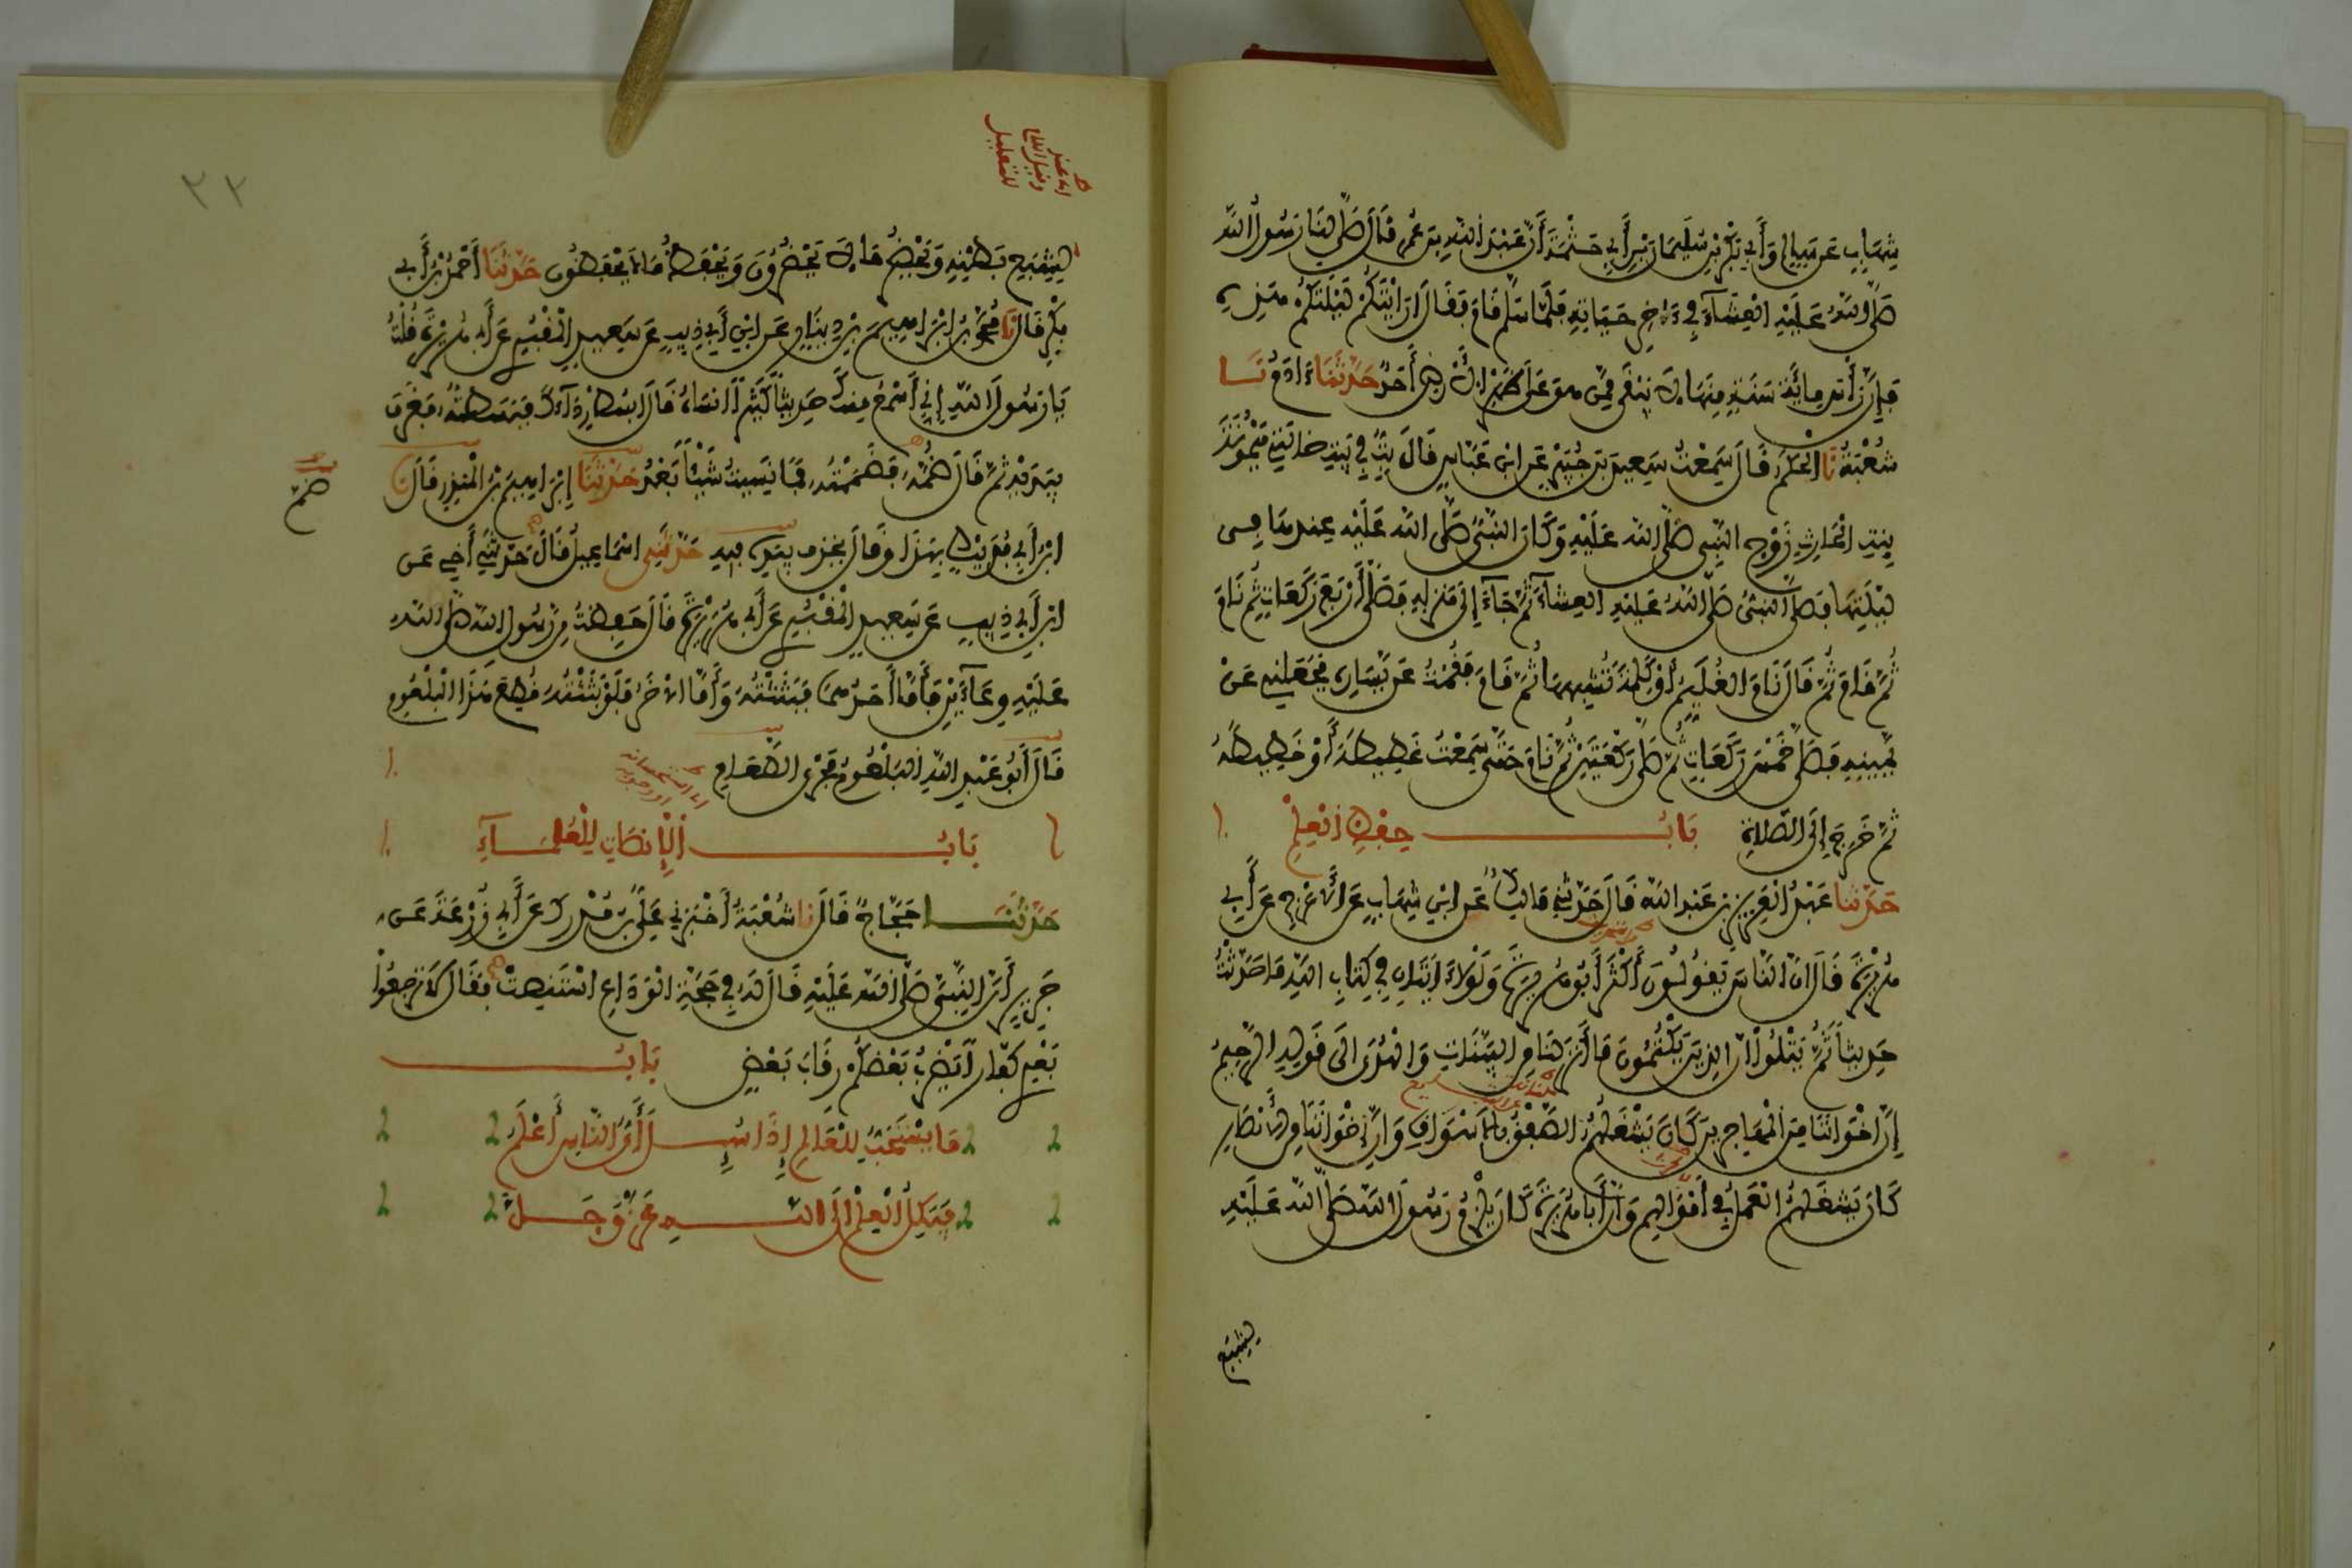 شهاب عن سالم وأبي بكر بن سليمان بن أبي حثمة أن عبد الله بن عمر قال صلى لنا رسول الله
صلى الله عليه العشاء في ءاخر حياته فلما سلم قام فقال أرايتكم ليلتكم هذه
فإن رأس مائة سنة منها لا يبقى ممن هو على ظهر الأرض أحد حدثنا ءادم نا
شعبة نا الحكم قال سمعت سعيد بن جبير عن ابن عباس قال بت في بيت خالتي ميمونة
بنت الحارث زوج النبي صلى الله عليه وكان النبي صلى الله عليه عندها في
ليلتها فصلى النبي صلى الله عليه العشاء ثم جاء إلى منزله فصلى أربع ركعات ثم نام
ثم قام ثم قال نام الغليم أو كلمة تشبهها ثم قام فقمت عن يساره فجعلني عن
يمينه فصلى خمس ركعات ثم صلى ركعتين ثم نام حتى سمعت غطيطه أو خطيطه
ثم خرج إلى الصلاة باب حفظ العلم
حدثنا عبد العزيز بن عبد الله قال حدثني مالك عن ابن شهاب عن الأعرج عن أبي
هريرة قال إن الناس يقولون أكثر أبو هريرة ولولا ءايتان في كتاب الله ما حدثت
حديثا ثم يتلو إن الذين يكتمون ما أنزلنا من البينات والهدى إلى قوله الرحيم
إن إخواننا من المهاجرين كان يشغلهم الصفق بالأسواق وإن إخواننا من الأنصار
كان يشغلهم العمل في أموالهم وإن أبا هريرة كان يلزم رسول الله صلى الله عليه
ليشبع
٢٢
لشبع بطنه ويحضر ما لا يحضرون ويحفظ ما لا يحفظون حدثنا أحمد بن أبي
بكر قال نا محمد بن إبراهيم بن دينار عن ابن أبي ذيب عن سعيد المقبري عن أبي هريرة قلت
يا رسول الله إني أسمع منك حديثا كثيرا أنساه قال ابسط رداءك فبسطته فغرف
بيديه ثم قال ضمه فضممته فما نسيت شيئا بعد حدثنا إبراهيم بن المنذر قال نا
ضم
ابن أبي فديك بهذا وقال يحذف بيده فيه حدثني إسماعيل قال حدثني أخي عن
ابن أبي ذيب عن سعيد المقبري عن أبي هريرة قال حفظت من رسول الله صلى الله
عليه وعاءين فأما أحدهما فبثثته وأما الآخر فلو بثثته قطع هذا البلعوم
قال أبو عبد الله البلعوم مجرى الطعام
باب الإنصات للعلماء
حدثنا حجاج قال نا شعبة أخبرني علي بن مدرك عن أبي زرعة عن
جرير أن النبي صلى الله عليه قال له في حجة الوداع استنصت فقال لا ترجعوا
بعدي كفارا يضرب بعضكم رقاب بعض باب
ما يستحب للعالم إذا سئل أي الناس أعلم
فيكل العلم إلى الله عز وجل